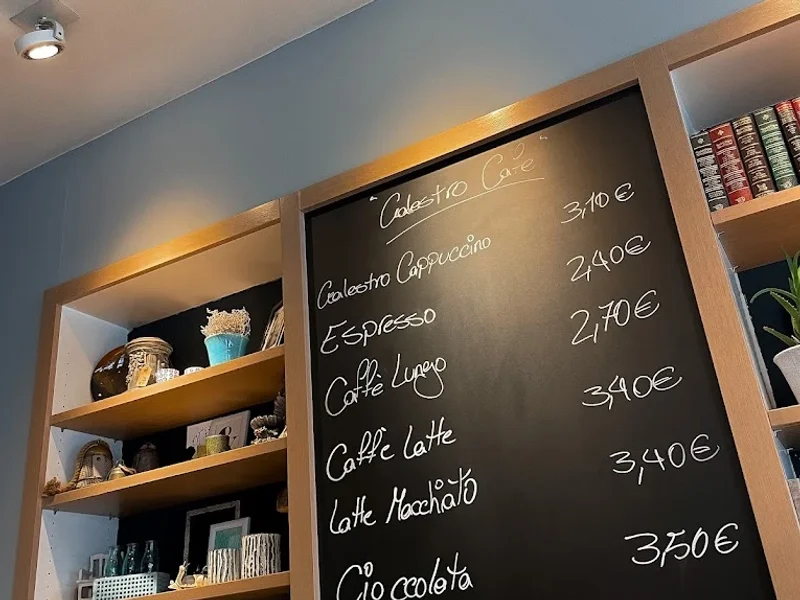 "Galestro Cafè"
Galestro Cappuccino 3,10 €
Espresso 2,40 €
Caffè Lungo 2,70 €
Caffè Latte 3,40 €
Latte Macchiato 3,40 €
Cioccolata 3,50 €